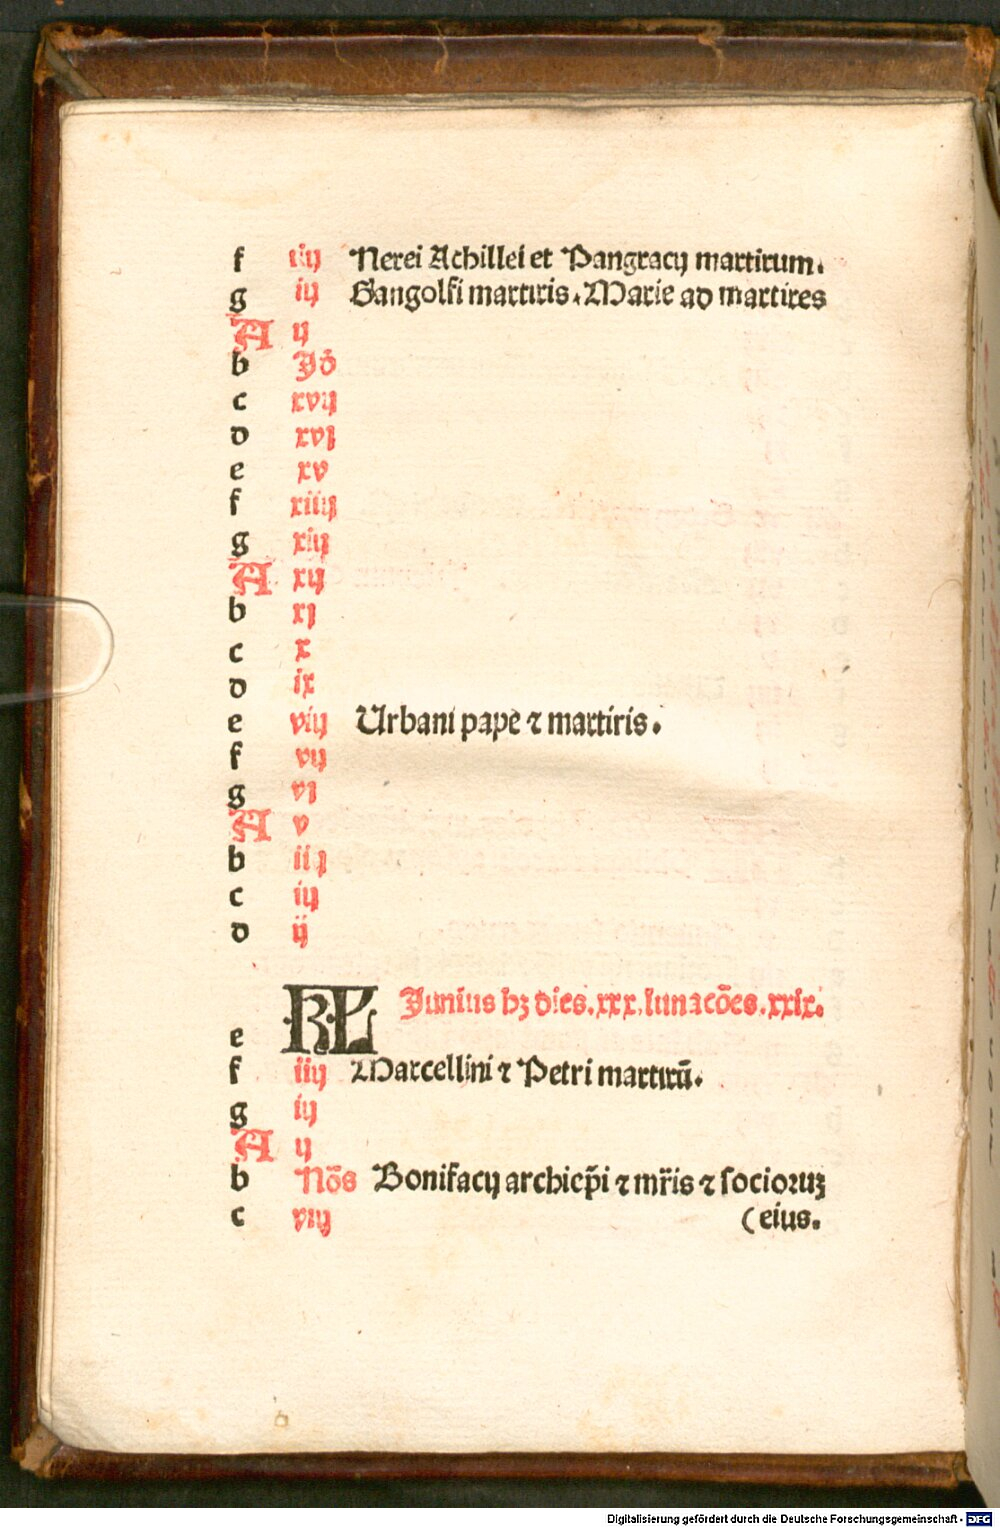 f iiij Nerei Achillei et Pangracij martirum.
g iij Gangolfi martiris. Marie ad martires
A ij
b Idꝰ
c xvij
d xvj
e xv
f xiiij
g xiij
A xij
b xj
c x
d ix
e viij Urbani pape ⁊ martiris.
f vij
g vj
A v
b iiij
c iij
d ij
e KL Junius hꝫ dies. xxx. lunacões. xxix.
f iiij Marcellini ⁊ Petri martirū.
g iij
A ij
b Nōs Bonifacij archiep̃i ⁊ mr̃is ⁊ socioruꝫ
c viij (eius.
Digitalisierung gefördert durch die Deutsche Forschungsgemeinschaft - DFG